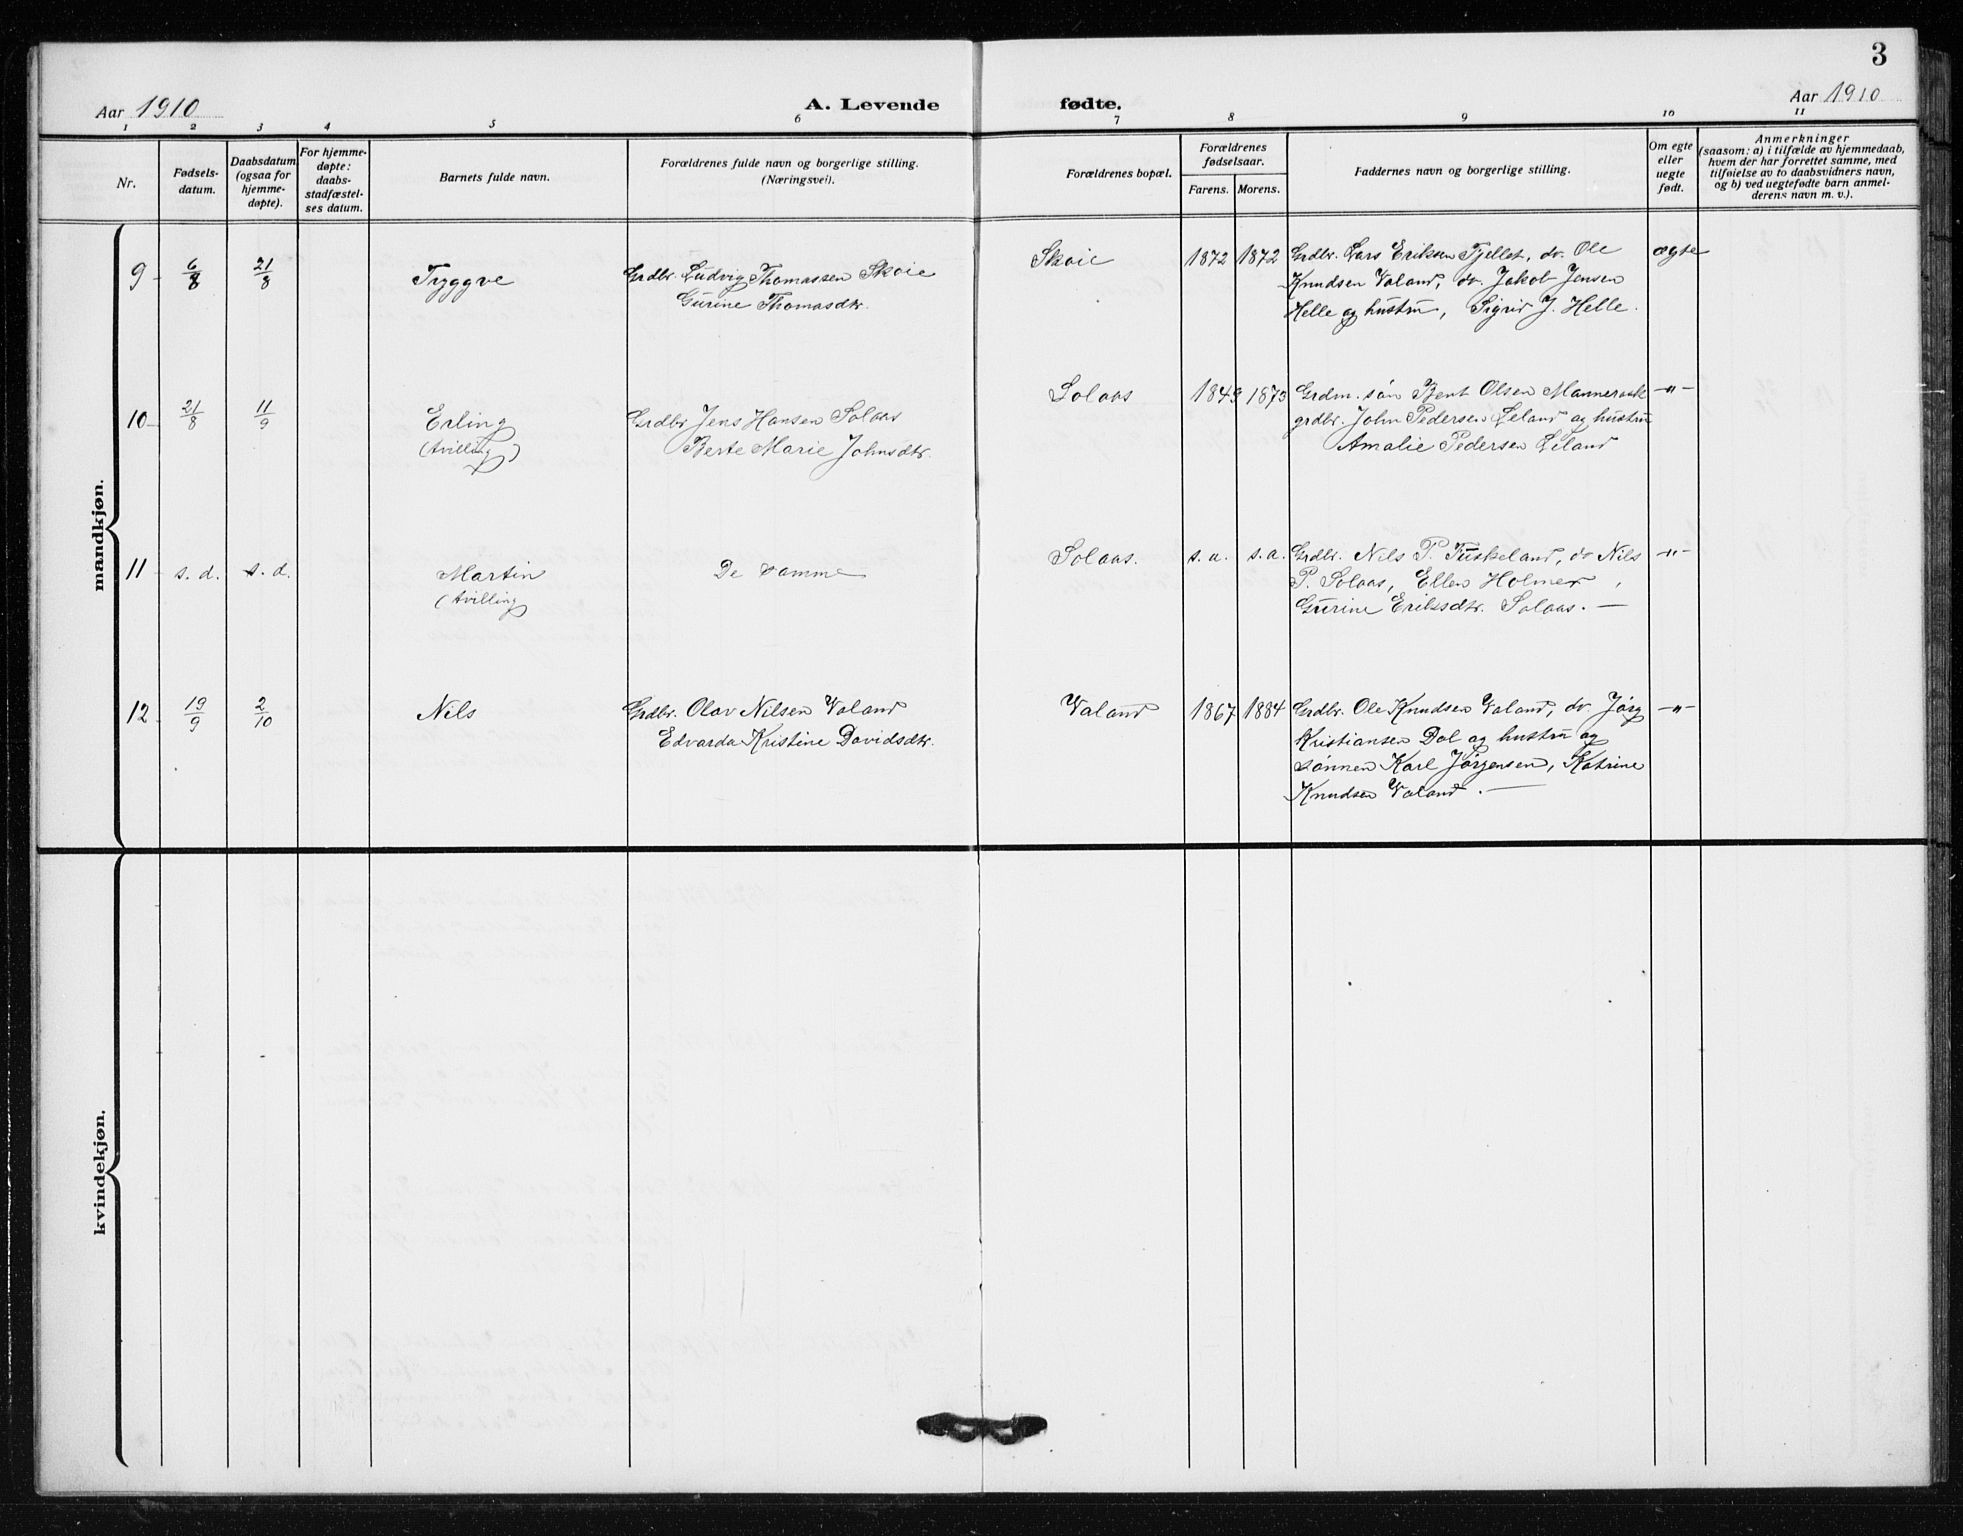 3
Aar 1910
A. Levende fødte.
Aar 1910
1 2 3 4 5 6 7 8 9 10 11
Nr.
Fødsels-
datum.
Daabsdatum
(ogsaa for
hjemme-
døpte).
For hjemme-
døpte:
daabs-
stadfæstel-
ses datum.
Barnets fulde navn.
Forældrenes fulde navn og borgerlige stilling.
(Næringsvei).
Forældrenes bopæl.
Forældrenes
fødselsaar.
Farens. Morens.
Faddernes navn og borgerlige stilling.
Om egte
eller
uegte
født.
Anmerkninger
(saasom: a) i tilfælde av hjemmedaab,
hvem der har forrettet samme, med
tilføielse av to daabsvidners navn,
og b) ved uegtefødte barn anmel-
derens navn m. v.).
mandkjøn.
9 6/8 21/8
Tryggve
Grdbr. Ludvig Thomassen Skoie
Gurine Thomasdtr.
Skoie
1872 1872
Grdbr. Lars Eriksen Fjellet, do. Ole
Knudsen Valand, do. Jakob Jensen
Helle og hustru, Sigrid J. Helle.
ægte
10 21/8 11/9
Erling
(tvilling)
Grdbr Jens Hansen Solaas
Berte Marie Johnsdtr.
Solaas
1849 1873
Grdm. søn Bent Olsen Manneraak
grdbr. John Pedersen Leland og hustru
Amalie Pedersen Leland
-"-
11 s. d. s. d.
Martin
(tvilling
De samme
Solaas.
s. a. s. a.
Grdbr. Nils P. Tuskeland, do Nils
P. Solaas, Ellen Holmer,
Gurine Eriksdtr. Solaas. —
-"-
12 19/9 2/10
Nils
Grdbr. Olav Nilsen Valand
Edvarda Kristine Davidsdtr.
Valand
1867 1884
Grdbr. Ole Knudsen Valand, do. Jørg
Kristiansen Dal og hustru og
sønnen Karl Jørgensen, Katrine
Knudsen Valand. —
-"-
kvindekjøn.